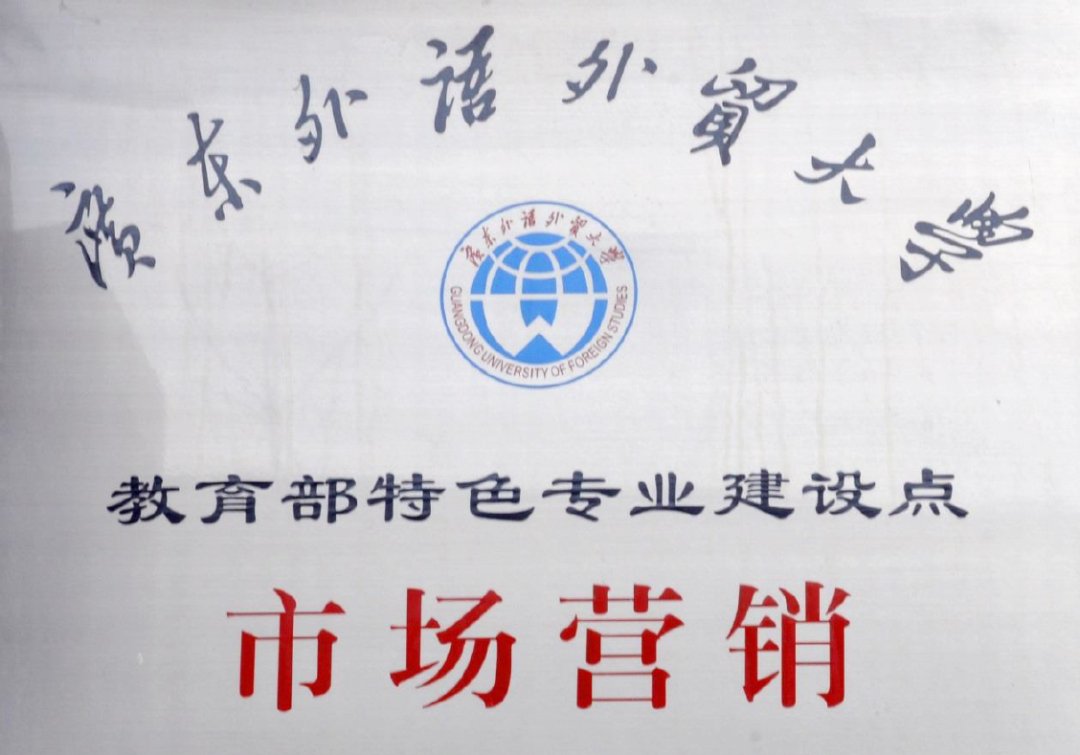 廣东外语外贸大学
廣东外语外贸大学
GUANGDONG UNIVERSITY OF FOREIGN STUDIES
教育部特色专业建设点
市场营销